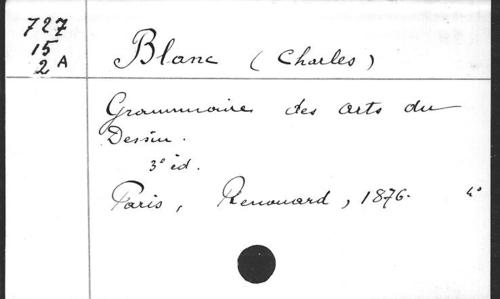 727
15
2 A
Blanc (Charles)
Grammaire des arts du
Dessin.
3e éd.
Paris, Renouard, 1876. 4°